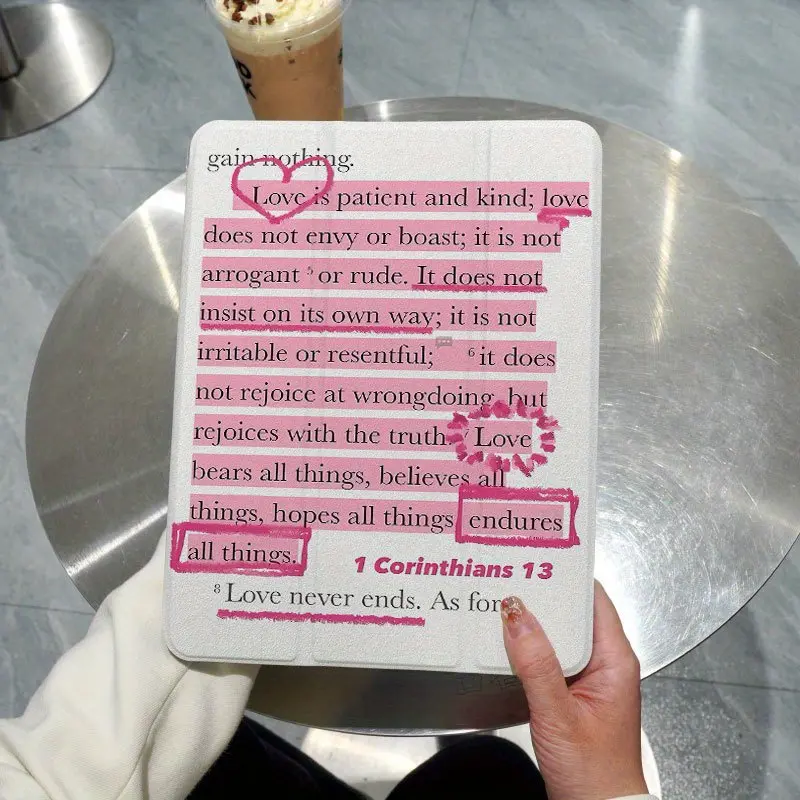 gain nothing.
Love is patient and kind; love
does not envy or boast; it is not
arrogant ⁵ or rude. It does not
insist on its own way; it is not
irritable or resentful; ⁶ it does
not rejoice at wrongdoing, but
rejoices with the truth. Love
bears all things, believes all
things, hopes all things endures
all things.
1 Corinthians 13
⁸ Love never ends. As for